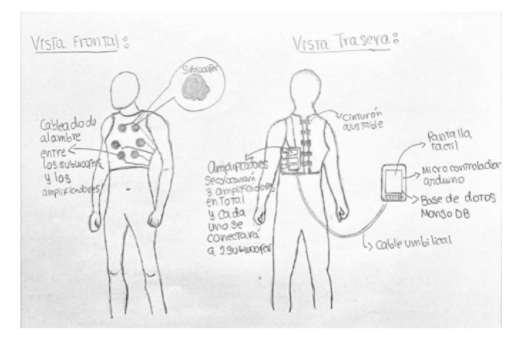 Vista Frontal:
Vista Trasera:
Subwoofer
Cableado de
alambre
entre
los subwoofers
y los
amplificadores
Cinturón
ajustable
Amplificadores
se colocarán
3 amplificadores
en total
y cada
uno se
conectará
a 2 subwoofer
Pantalla
táctil
Microcontrolador
arduino
Base de datos
Mongo DB
Cable umbilical